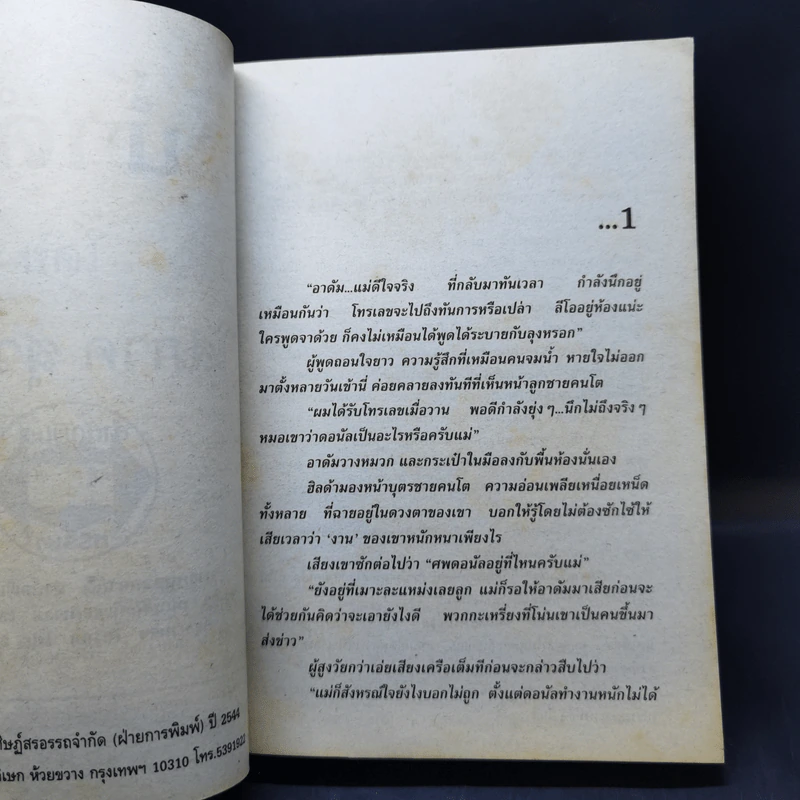 ศิษฏ์สรอรรถจำกัด (ฝ่ายการพิมพ์) ปี 2544
ห้วยขวาง กรุงเทพฯ 10310 โทร.5391922
...1
“อาดัม...แม่ดีใจจริง ที่กลับมาทันเวลา กำลังนึกอยู่
เหมือนกันว่า โทรเลขจะไปถึงทันการหรือเปล่า ลีโออยู่ห้องแน่ะ
ใครพูดจาด้วย ก็คงไม่เหมือนได้พูดได้ระบายกับลุงหรอก”
ผู้พูดถอนใจยาว ความรู้สึกที่เหมือนคนจมน้ำ หายใจไม่ออก
มาตั้งหลายวันเข้านี่ ค่อยคลายลงทันทีที่เห็นหน้าลูกชายคนโต
“ผมได้รับโทรเลขเมื่อวาน พอดีกำลังยุ่งๆ...นึกไม่ถึงจริงๆ
หมอเขาว่าดอนัลเป็นอะไรหรือครับแม่”
อาดัมวางหมวก และกระเป๋าในมือลงกับพื้นห้องนั่นเอง
ฮิลด้ามองหน้าบุตรชายคนโต ความอ่อนเพลียเหนื่อยเหน็ด
ทั้งหลาย ที่ฉายอยู่ในดวงตาของเขา บอกให้รู้โดยไม่ต้องซักไซ้ให้
เสียเวลาว่า ‘งาน’ ของเขาหนักหนาเพียงไร
เสียงเขาซักต่อไปว่า “ศพดอนัลอยู่ที่ไหนครับแม่”
“ยังอยู่ที่เมาะละแหม่งเลยลูก แม่ก็รอให้อาดัมมาเสียก่อนจะ
ได้ช่วยกันคิดว่าจะเอายังไงดี พวกกะเหรี่ยงที่โน่นเขาเป็นคนขึ้นมา
ส่งข่าว”
ผู้สูงวัยกว่าเอ่ยเสียงเครือเต็มทีก่อนจะกล่าวสืบไปว่า
“แม่ก็สังหรณ์ใจยังไงบอกไม่ถูก ตั้งแต่ดอนัลทำงานหนักไม่ได้